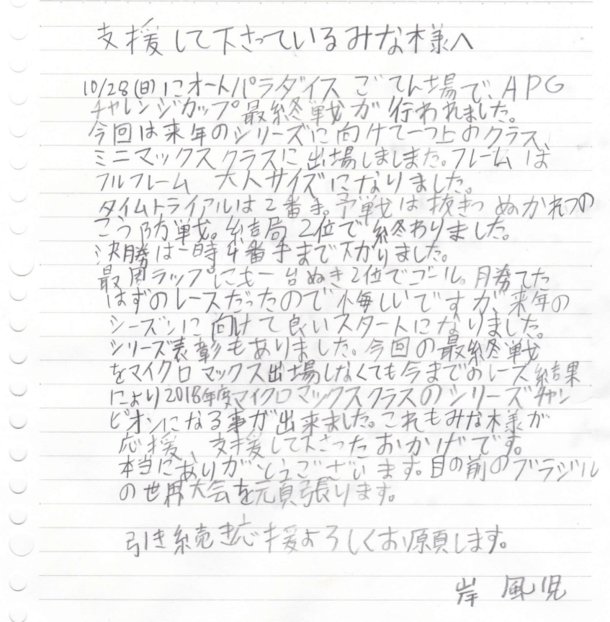 支援して下さっているみな様へ
10/28(日)にオートパラダイスごてん場で、APG
チャレンジカップ最終戦が行われました。
今回は来年のシリーズに向けて一つ上のクラス、
ミニマックスクラスに出場しましまた。フレームは
フルフレーム 大人サイズになりました。
タイムトライアルは2番手。予戦は抜きつぬかれつの
こう防戦。結局2位で終わりました。
決勝は一時4番手まで下がりました。
最周ラップにも一台ぬき2位でゴール。月券てた
はずのレースだったので悔しいですが、来年の
シーズンに向けて良いスタートになりました。
シリーズ表彰もありました。今回の最終戦
をマイクロマックス出場しなくても今までのレース結果
により2018年度マイクロマックスクラスのシリーズチャン
ピオンになる事が出来ました。これもみな様が
応援、支援して下さったおかげです。
本当にありがとうございます。目の前のブラジル
の世界大会を元頁張ります。
引き続き応援よろしくお願します。
岸 風児